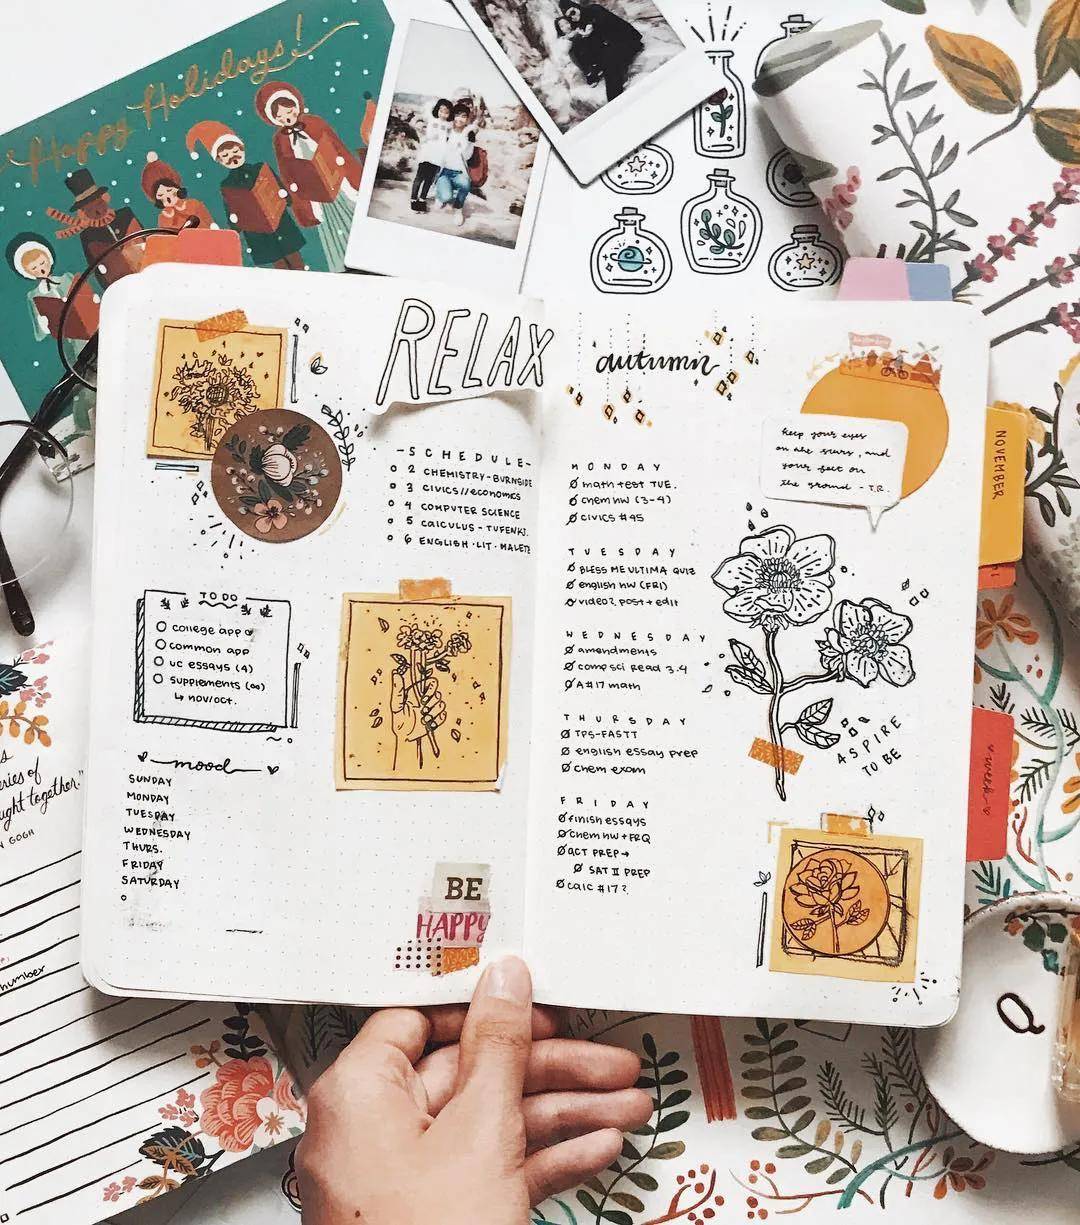 Happy Holidays!
RELAX
-SCHEDULE-
2 CHEMISTRY-BURNSIDE
3 CIVICS//economics
4 COMPUTER SCIENCE
5 CALCULUS-TUFENKJ.
6 ENGLISH.LIT.MALETE
TO DO
college app
common app
UC essays (4)
supplements (∞)
↳ nov/oct.
mood
SUNDAY
MONDAY
TUESDAY
WEDNESDAY
THURS.
FRIDAY
SATURDAY
BE
HAPPY
autumn
keep your eyes
on the stars, and
your feet on
the ground - T.R.
MONDAY
math test TUE.
chem hw (3-4)
CIVICS #45
TUESDAY
BLESS ME ULTIMA QUIZ
english HW (FRI)
video? post + edit
WEDNESDAY
amendments
comp sci Read 3.4
A#17 math
THURSDAY
TPS-FASTT
english essay prep
chem exam
FRIDAY
finish essays
chem hw + FRQ
ACT PREP→
SAT II PREP
calc #17?
ASPIRE
TO BE
NOVEMBER
week
series of
ught together."
N GOGH
number